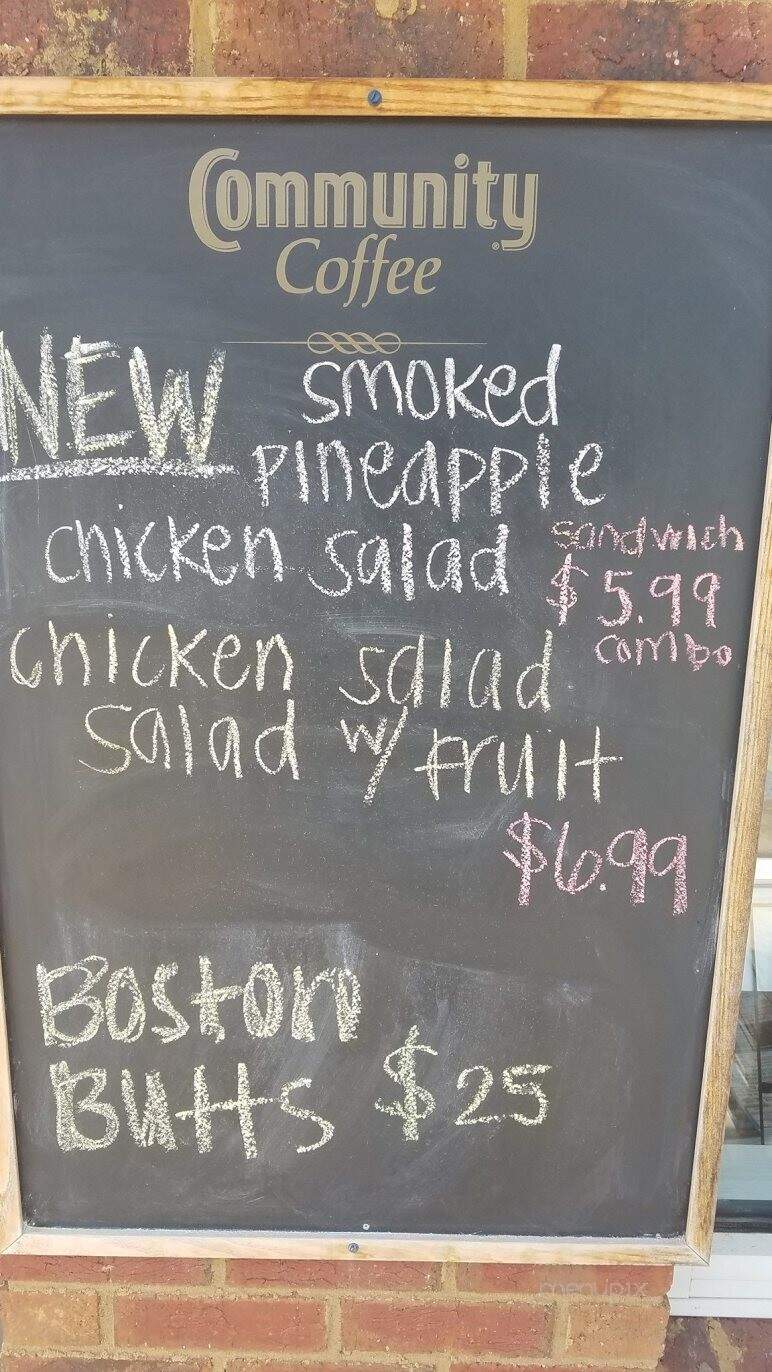 Community
Coffee
NEW smoked
pineapple
chicken salad sandwich
$5.99
combo
chicken salad
salad w/ fruit
$6.99
Boston
Butts $25
menupix